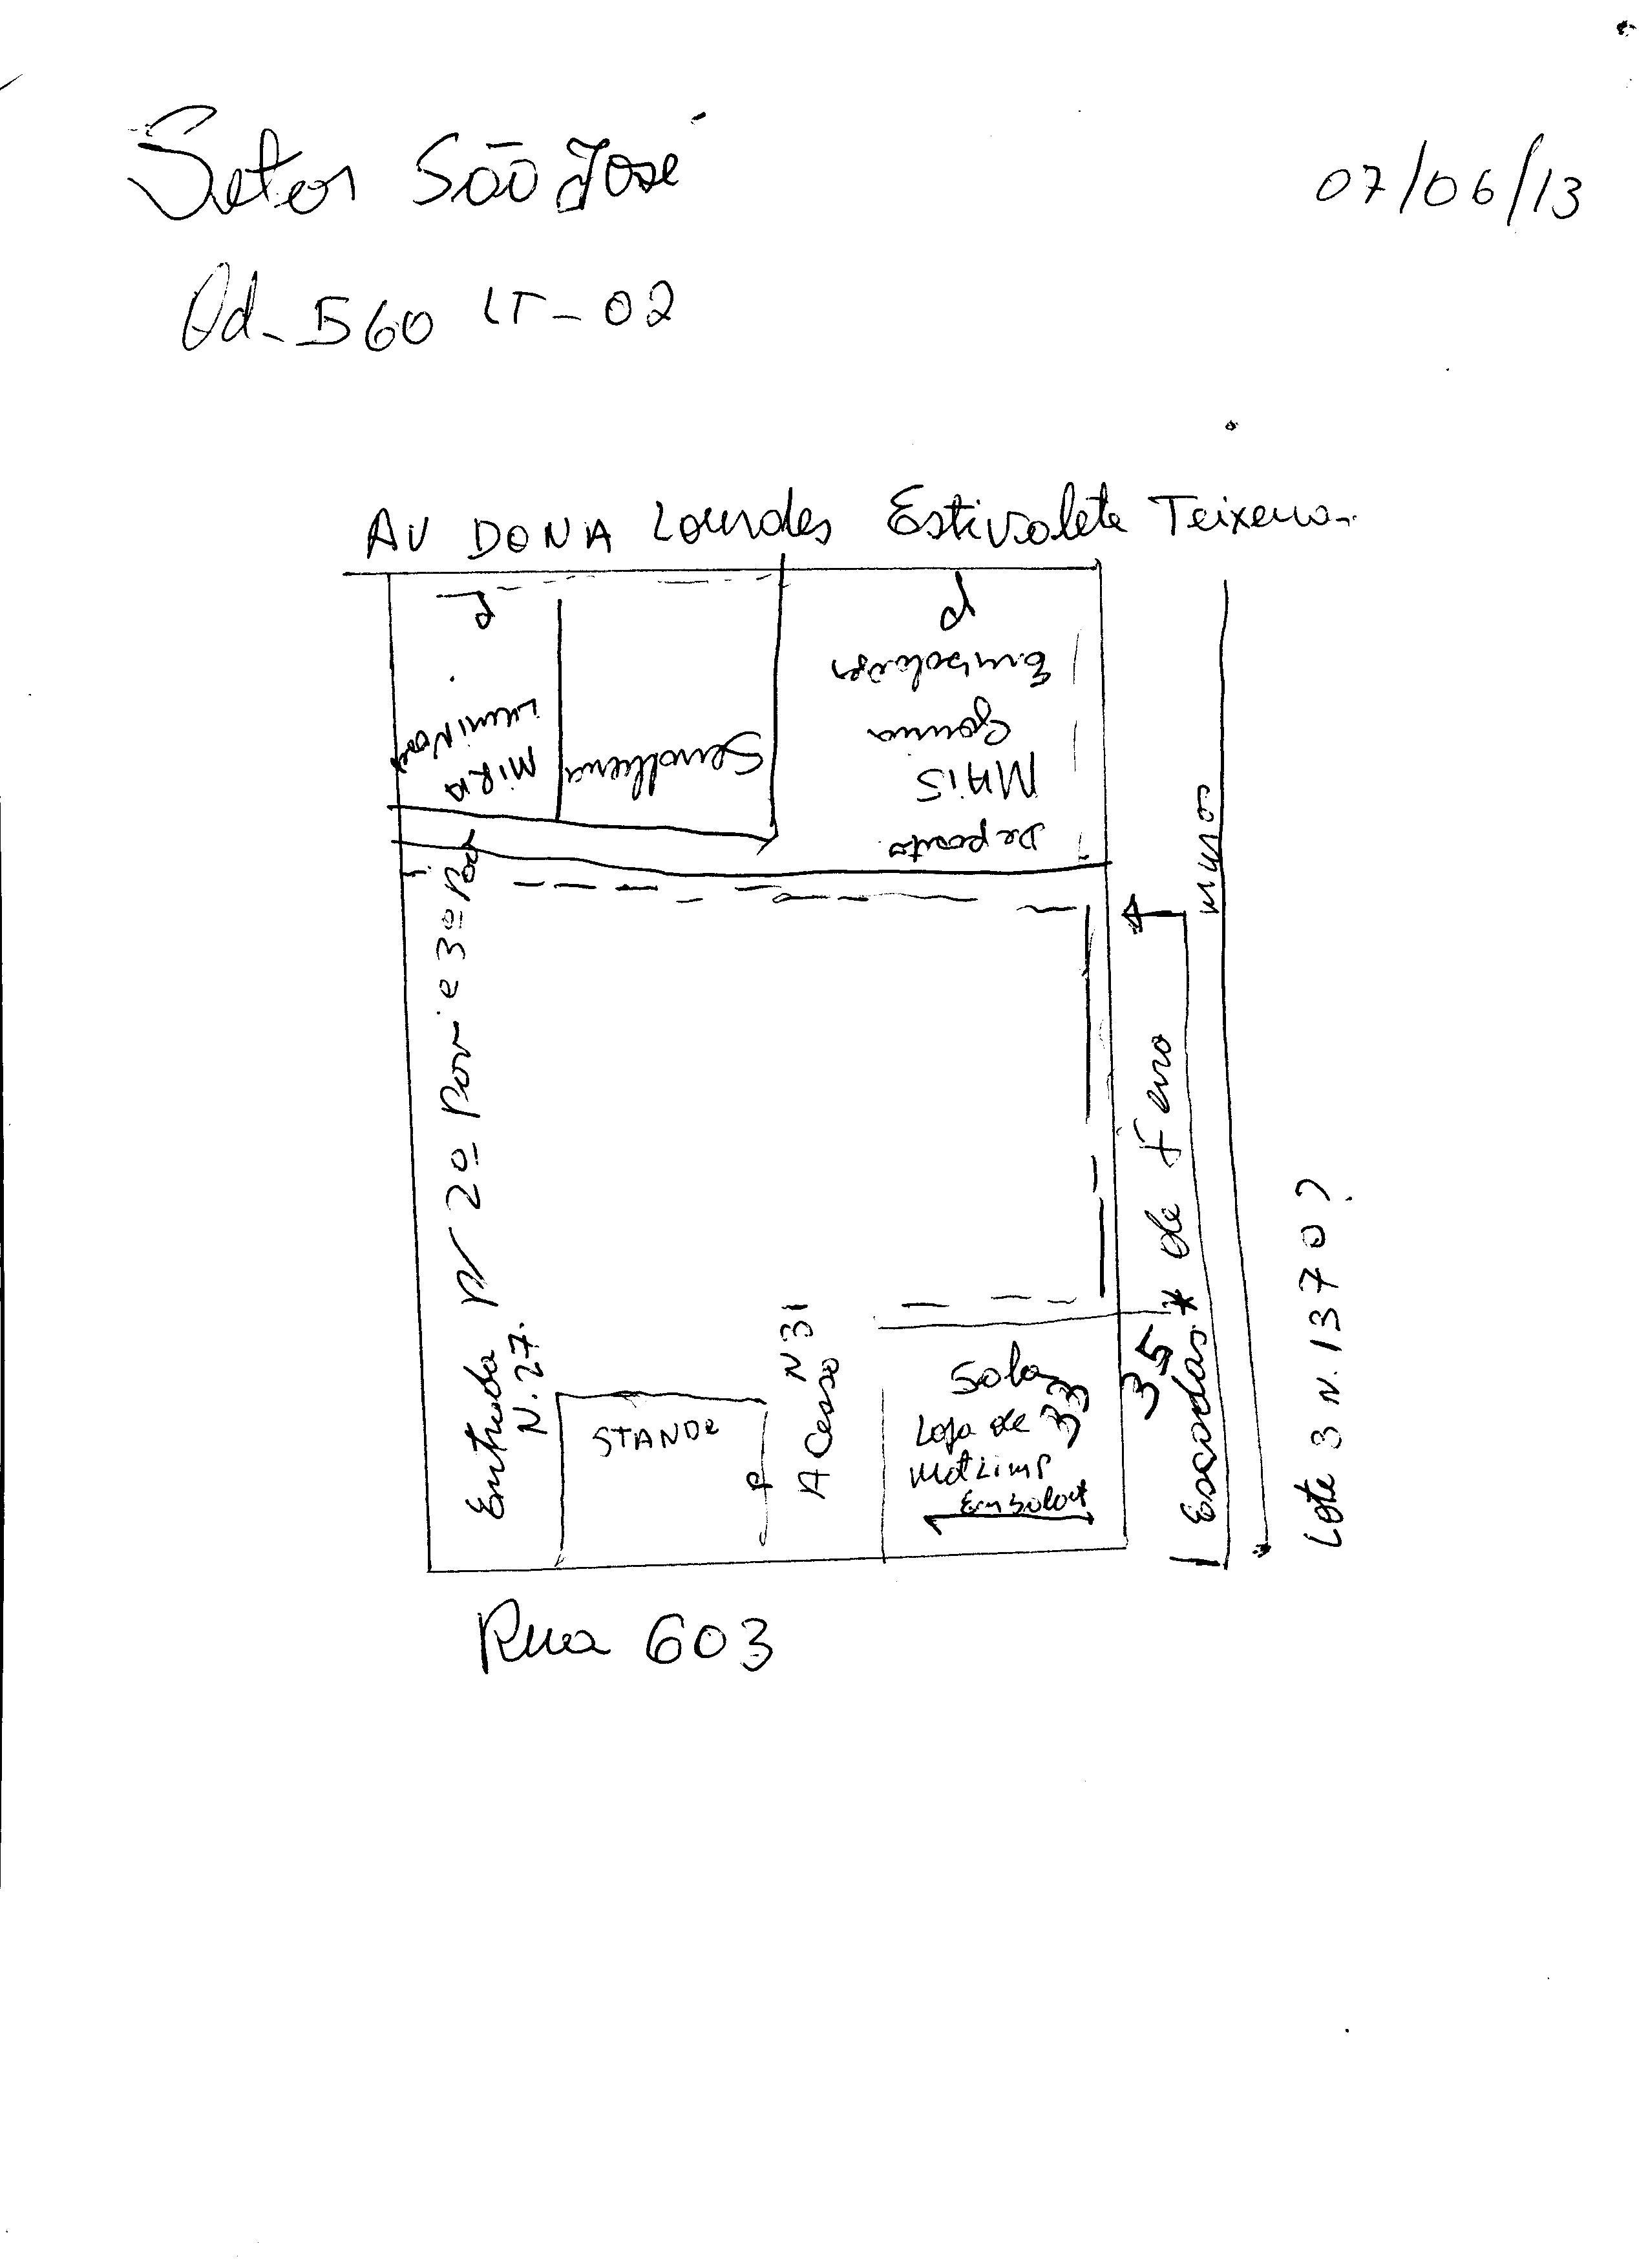 Setor São José
07/06/13
Qd-560 LT-02
AV DONA Lourdes Estivalete Teixeira
P
P
MiRA
LumiNosos
Serralheria
Deposito
MAIS
Goiania
Embalagens
muros
Entrada P/ 2º Pav e 3º Pav
N. 27.
STANDE
P
N 31
Acesso
Sala
33
Loja de
Mat Limp
Embalag
35
Escadas * de Ferro
Lote 3 N. 1370?
Rua 603